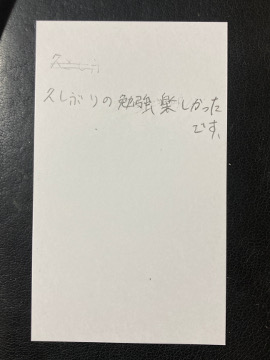 久しぶりの勉強楽しかった
です。